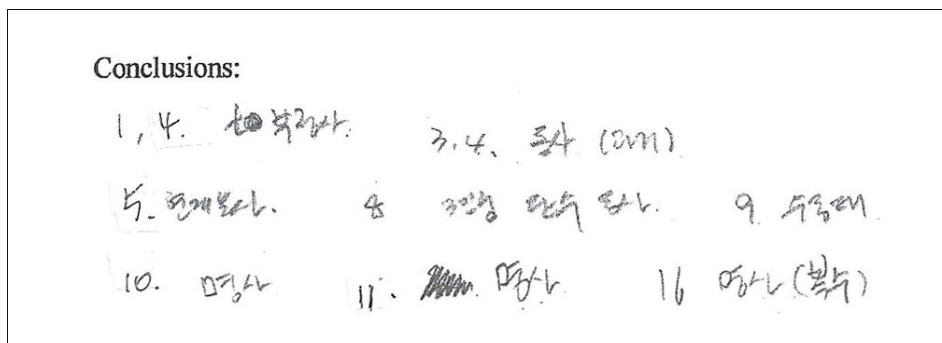 Conclusions:
1, 4. to 부정사. 3.4. 동사 (과거)
5. 현재동사. 8 3인칭 단수 동사. 9 수동태
10. 명사 11. 명사 16 명사 (복수)